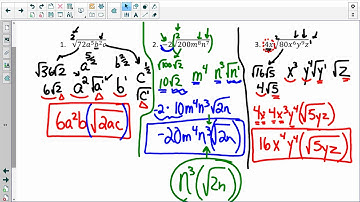 1. √72a⁵b²c
√36√2 a² √a b c^½
6√2 a²√a b¹ √c
6a²b√2ac
2. -2√200m⁸n⁷
√100√2
10√2 m⁴ n³√n¹
-2·10m⁴n³√2n
-20m⁴n³√2n
n³(√2n)
3. 4x√80x⁶y⁹z
√16√5 x³ y⁴√y¹ √z
4√5
4x·4x³y⁴√5yz
16x⁴y⁴√5yz